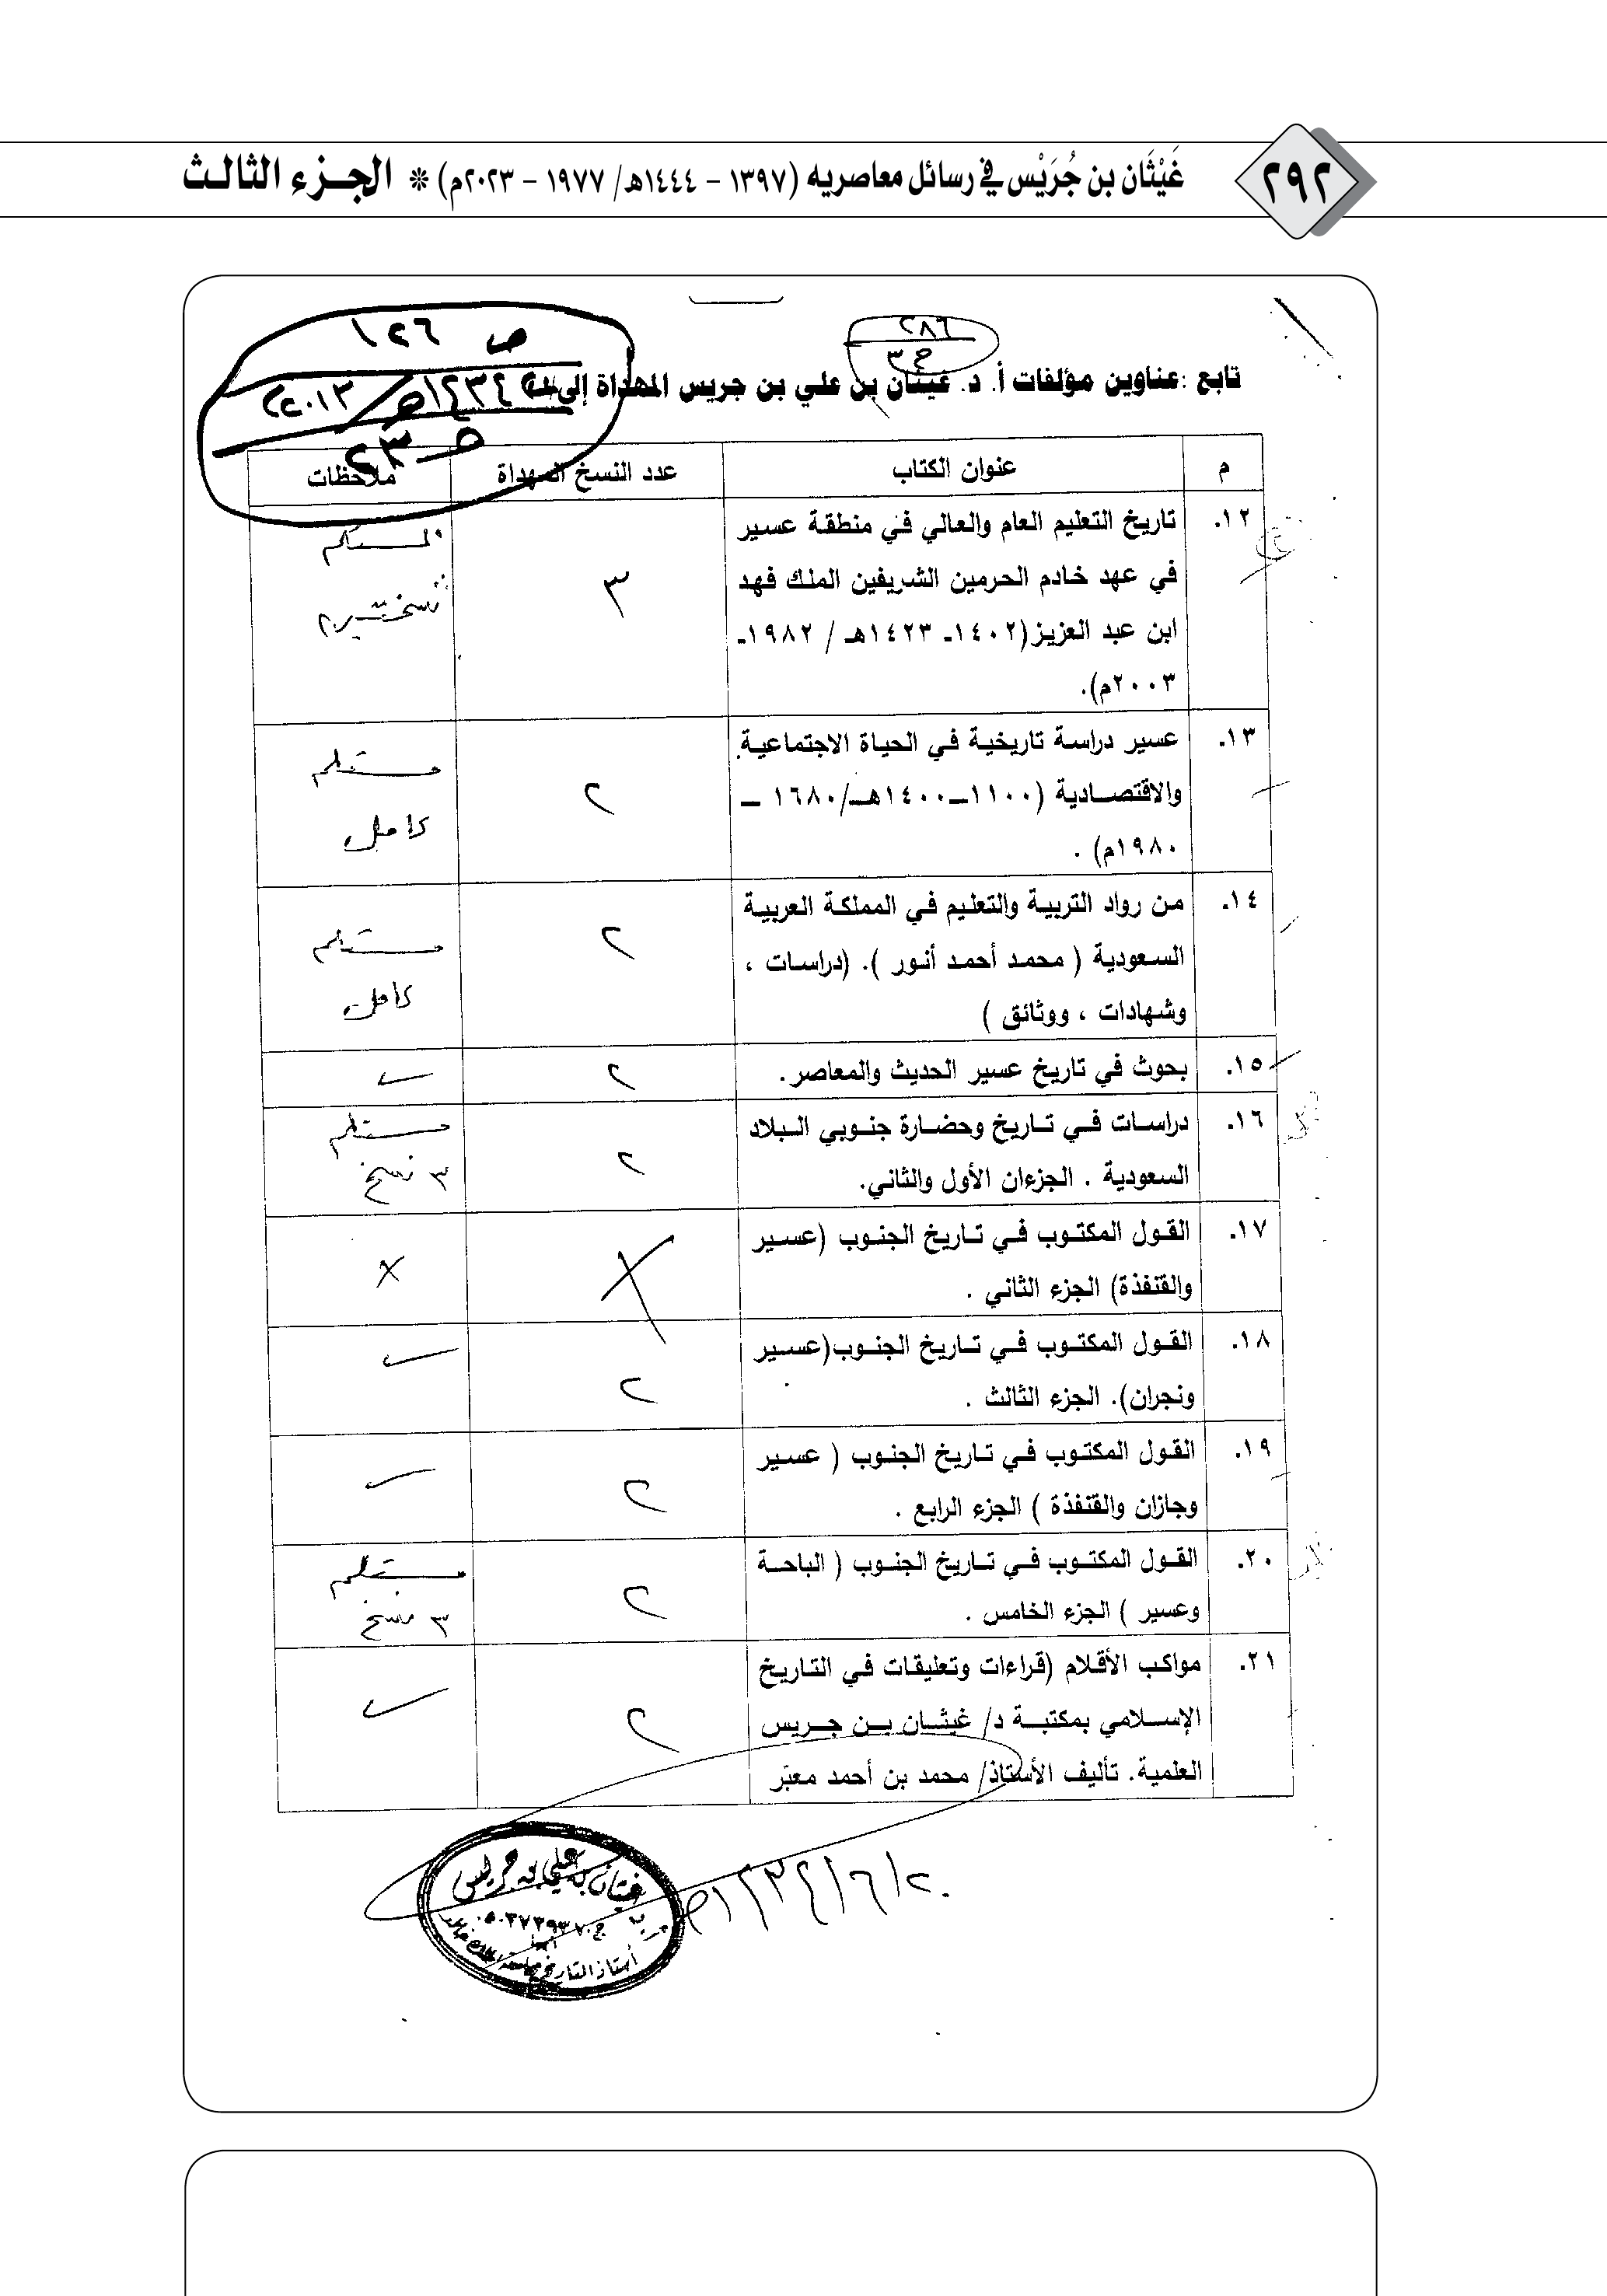 ٢٩٢
غَيْثَان بن جُرَيْس في رسائل معاصريه (١٣٩٧ – ١٤٤٤هـ/ ١٩٧٧ – ٢٠٢٣م) * الجزء الثالث
ص ١٢٦
١٤٣٤هـ / ٢٠١٣
٢٨٦
ج ٣
تابع :عناوين مؤلفات أ. د. غيثان بن علي بن جريس المهداة إلى
م
عنوان الكتاب
عدد النسخ المهداة
ملاحظات
١٢.
تاريخ التعليم العام والعالي في منطقة عسير
في عهد خادم الحرمين الشريفين الملك فهد
ابن عبد العزيز(١٤٠٢ـ ١٤٢٣هـ / ١٩٨٢ـ
٢٠٠٣م).
٣
نسختين
١٣.
عسير دراسة تاريخية في الحياة الاجتماعية
والاقتصادية (١١٠٠ــ١٤٠٠هـ/١٦٨٠ ــ
١٩٨٠م) .
٢
مستلم
كامل
١٤.
من رواد التربية والتعليم في المملكة العربية
السعودية ( محمد أحمد أنور ). (دراسات ،
وشهادات ، ووثائق )
٢
مستلم
كامل
١٥.
بحوث في تاريخ عسير الحديث والمعاصر.
٢
١٦.
دراسات في تاريخ وحضارة جنوبي البلاد
السعودية . الجزءان الأول والثاني.
٢
مستلم
٣ نسخ
١٧.
القول المكتوب في تاريخ الجنوب (عسير
والقنفذة) الجزء الثاني .
١٨.
القول المكتوب في تاريخ الجنوب(عسير
ونجران). الجزء الثالث .
٢
١٩.
القول المكتوب في تاريخ الجنوب ( عسير
وجازان والقنفذة ) الجزء الرابع .
٢
٢٠.
القول المكتوب في تاريخ الجنوب ( الباحة
وعسير ) الجزء الخامس .
٢
مستلم
٣ نسخ
٢١.
مواكب الأقلام (قراءات وتعليقات في التاريخ
الإسلامي بمكتبة د/ غيثان بن جريس
العلمية. تأليف الأستاذ/ محمد بن أحمد معبّر
٢
٢٠/٦/١٤٣٤هـ
غيثان بن علي بن جريس
أبها
أستاذ التاريخ